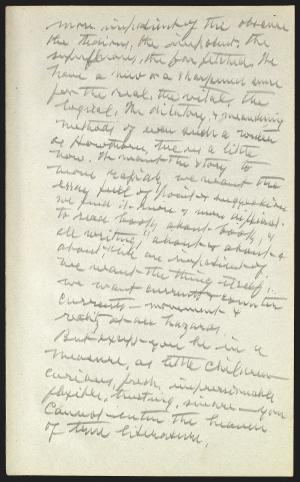 more impatient of the obscure
the tedious, the impotent, the
superfluous, the far fetched. We
have a new or a sharpened sense
for the real, the vital, the
logical. The dilatory, & meandering
methods of even such a writer
as Hawthorne, tire us a little
now. We want the story to
move rapidly, we want the
essay full of point & suggestion
we find it more & more difficult
to read books about books, &
all writing "about & about" &
about, we are impatient of,
We want the thing itself;
we want currents & counter
currents — movement &
reality at all hazards.
But except you be in a
measure, as little children —
curious, fresh, impressionable
flexible, trusting, sincere — you
cannot enter the heaven
of true literature.